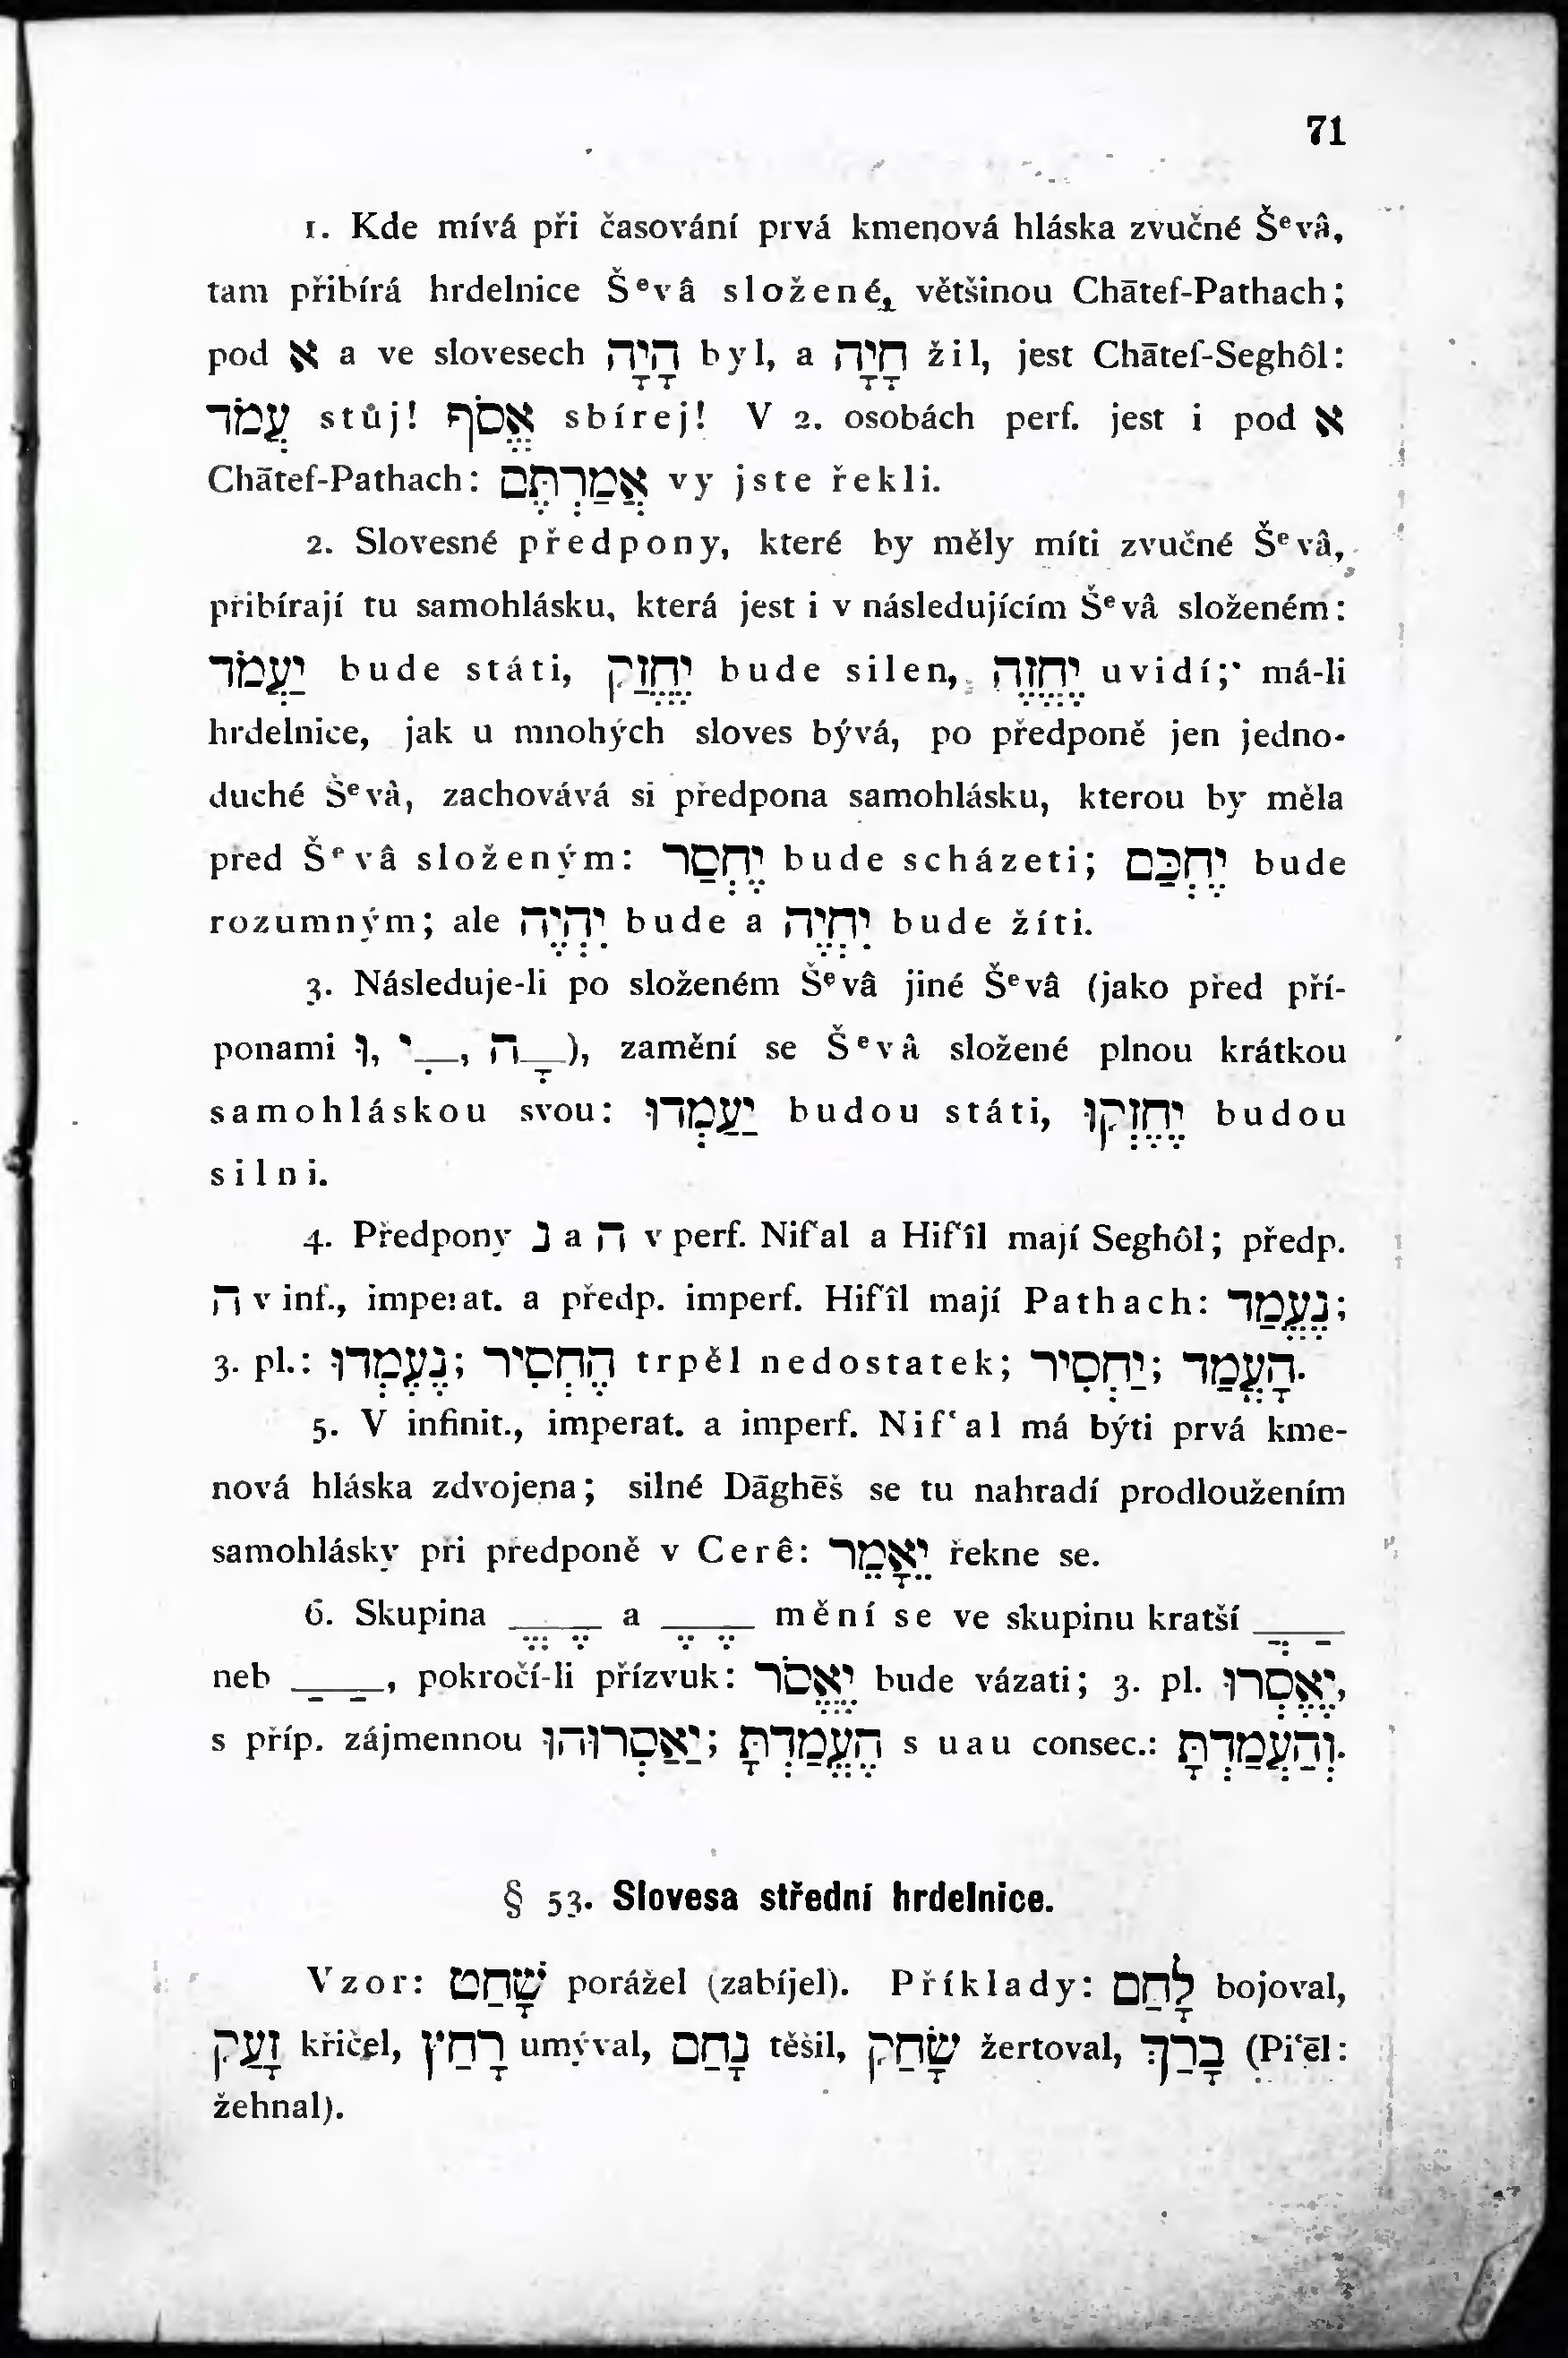 71
1. Kde mívá při časování prvá kmenová hláska zvučné Šᵉvâ,
tam přibírá hrdelnice Šᵉvâ složené, většinou Chātef-Pathach;
pod א a ve slovesech הָיָה byl, a חָיָה žil, jest Chātef-Seghôl:
עֲמֹד stůj! אֱסֹף sbírej! V 2. osobách perf. jest i pod א
Chātef-Pathach: אֲמַרְתֶּם vy jste řekli.
2. Slovesné předpony, které by měly míti zvučné Šᵉvâ,
přibírají tu samohlásku, která jest i v následujícím Šᵉvâ složeném:
יַעֲמֹד bude státi, יֶחֱזַק bude silen, יֶחֱזֶה uvidí; má-li
hrdelnice, jak u mnohých sloves bývá, po předponě jen jedno-
duché Šᵉvâ, zachovává si předpona samohlásku, kterou by měla
před Šᵉvâ složeným: יֶחְסַר bude scházeti; יֶחְכַּם bude
rozumným; ale יִהְיֶה bude a יִחְיֶה bude žíti.
3. Následuje-li po složeném Šᵉvâ jiné Šᵉvâ (jako před pří-
ponami וּ, ־ִי, ־ָה), zamění se Šᵉvâ složené plnou krátkou
samohláskou svou: יַעַמְדוּ budou státi, יֶחֶזְקוּ budou
silni.
4. Předpony נ a ה v perf. Nifʿal a Hifʿîl mají Seghôl; předp.
ה v inf., imperat. a předp. imperf. Hifʿîl mají Pathach: נֶעֱמַד;
3. pl.: נֶעֶמְדוּ; הֶחְסִיר trpěl nedostatek; יַחְסִיר; הָעֳמַד.
5. V infinit., imperat. a imperf. Nifʿal má býti prvá kme-
nová hláska zdvojena; silné Dāghēš se tu nahradí prodloužením
samohlásky při předponě v Cerê: יֵאָמֵר řekne se.
6. Skupina ֶ ֱ a ֶ ֶ mění se ve skupinu kratší ַ ֲ
neb ַ ַ, pokročí-li přízvuk: יֶאֱסֹר bude vázati; 3. pl. יֶאֶסְרוּ,
s příp. zájmennou יַאַסְרוּהוּ; הֶעֱמַדְתָּ s uau consec.: וְהַעֲמַדְתָּ.
§ 53. Slovesa střední hrdelnice.
Vzor: שָׁחַט porážel (zabíjel). Příklady: לָחַם bojoval,
זָעַק křičel, רָחַץ umýval, נָחַם těšil, שָׂחַק žertoval, בָּרַךְ (Piʿēl:
žehnal).